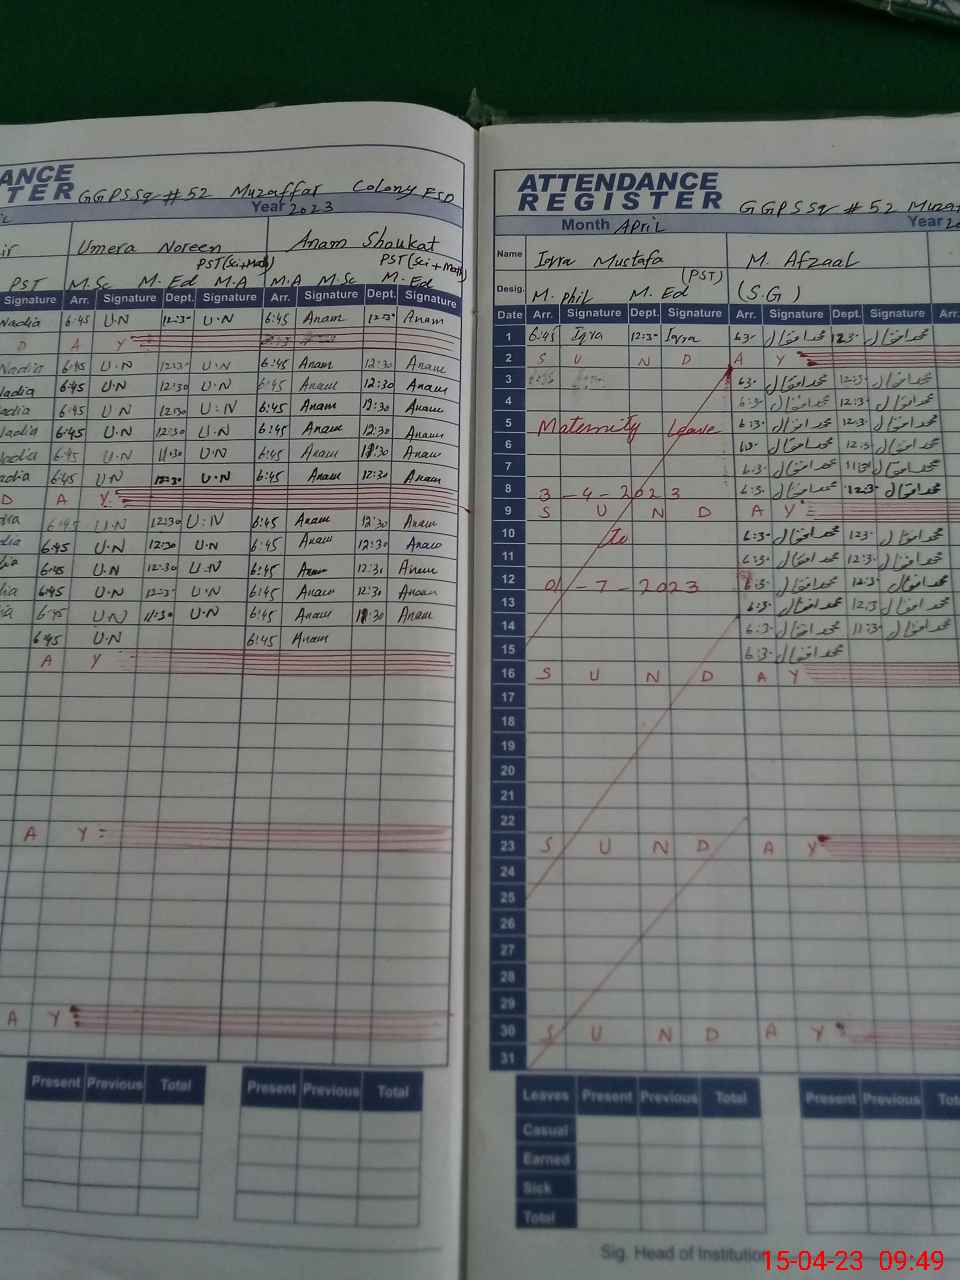 ANCE
TER GGPSSq # 52 Muzaffar Colony FSD
Year 2023
Umera Noreen Anam Shaukat
PST (Sci+Math) PST (Sci+Math)
PST M.Sc M.Ed M.A M.A M.Sc M.Ed
Signature Arr. Signature Dept. Signature Arr. Signature Dept. Signature
Nadia 6:45 U.N 12:3 U.N 6:45 Anam 12:3 Anam
D A Y
Nadia 6:45 U.N 12:3 U.N 6:45 Anam 12:30 Anam
adia 6:45 U.N 12:30 U.N 6:45 Anam 12:30 Anam
adia 6:45 U.N 12:30 U.N 6:45 Anam 12:30 Anam
adia 6:45 U.N 12:30 U.N 6:45 Anam 12:30 Anam
adia 6:45 U.N 11:30 U.N 6:45 Anam 11:30 Anam
adia 6:45 U.N 12:30 U.N 6:45 Anam 12:30 Anam
D A Y
dia 6:45 U.N 12:30 U.N 6:45 Anam 12:30 Anam
dia 6:45 U.N 12:30 U.N 6:45 Anam 12:30 Anam
dia 6:45 U.N 12:30 U.N 6:45 Anam 12:30 Anam
lia 6:45 U.N 12:3 U.N 6:45 Anam 12:30 Anam
ia 6:45 U.N 11:30 U.N 6:45 Anam 11:30 Anam
6:45 U.N 6:45 Anam
A Y
A Y
A Y
Present Previous Total Present Previous Total
ATTENDANCE
REGISTER GGPSSq # 52 Muza
Month April Year 20
Name Iqra Mustafa M. Afzaal
(PST)
Desig. M.Phil M.Ed (S.G)
Date Arr. Signature Dept. Signature Arr. Signature Dept. Signature Arr.
1 6:45 Iqra 12:3 Iqra 6:3 محمد افضال 12:3 محمد افضال
2 S U N D A Y
3 6:3 محمد افضال 12:3 محمد افضال
4 6:3 محمد افضال 12:3 محمد افضال
5 Maternity Leave 6:3 محمد افضال 12:3 محمد افضال
6 6:3 محمد افضال 12:3 محمد افضال
7 6:3 محمد افضال 11:3 محمد افضال
8 3-4-2023 6:3 محمد افضال 12:3 محمد افضال
9 S U N D A Y
10 To 6:3 محمد افضال 12:3 محمد افضال
11 6:3 محمد افضال 12:3 محمد افضال
12 01-7-2023 6:3 محمد افضال 12:3 محمد افضال
13 6:3 محمد افضال 12:3 محمد افضال
14 6:3 محمد افضال 11:3 محمد افضال
15 6:3 محمد افضال
16 S U N D A Y
17
18
19
20
21
22
23 S U N D A Y
24
25
26
27
28
29
30 S U N D A Y
31
Leaves Present Previous Total Present Previous Tot
Casual
Earned
Sick
Total
Sig. Head of Institution
15-04-23 09:49